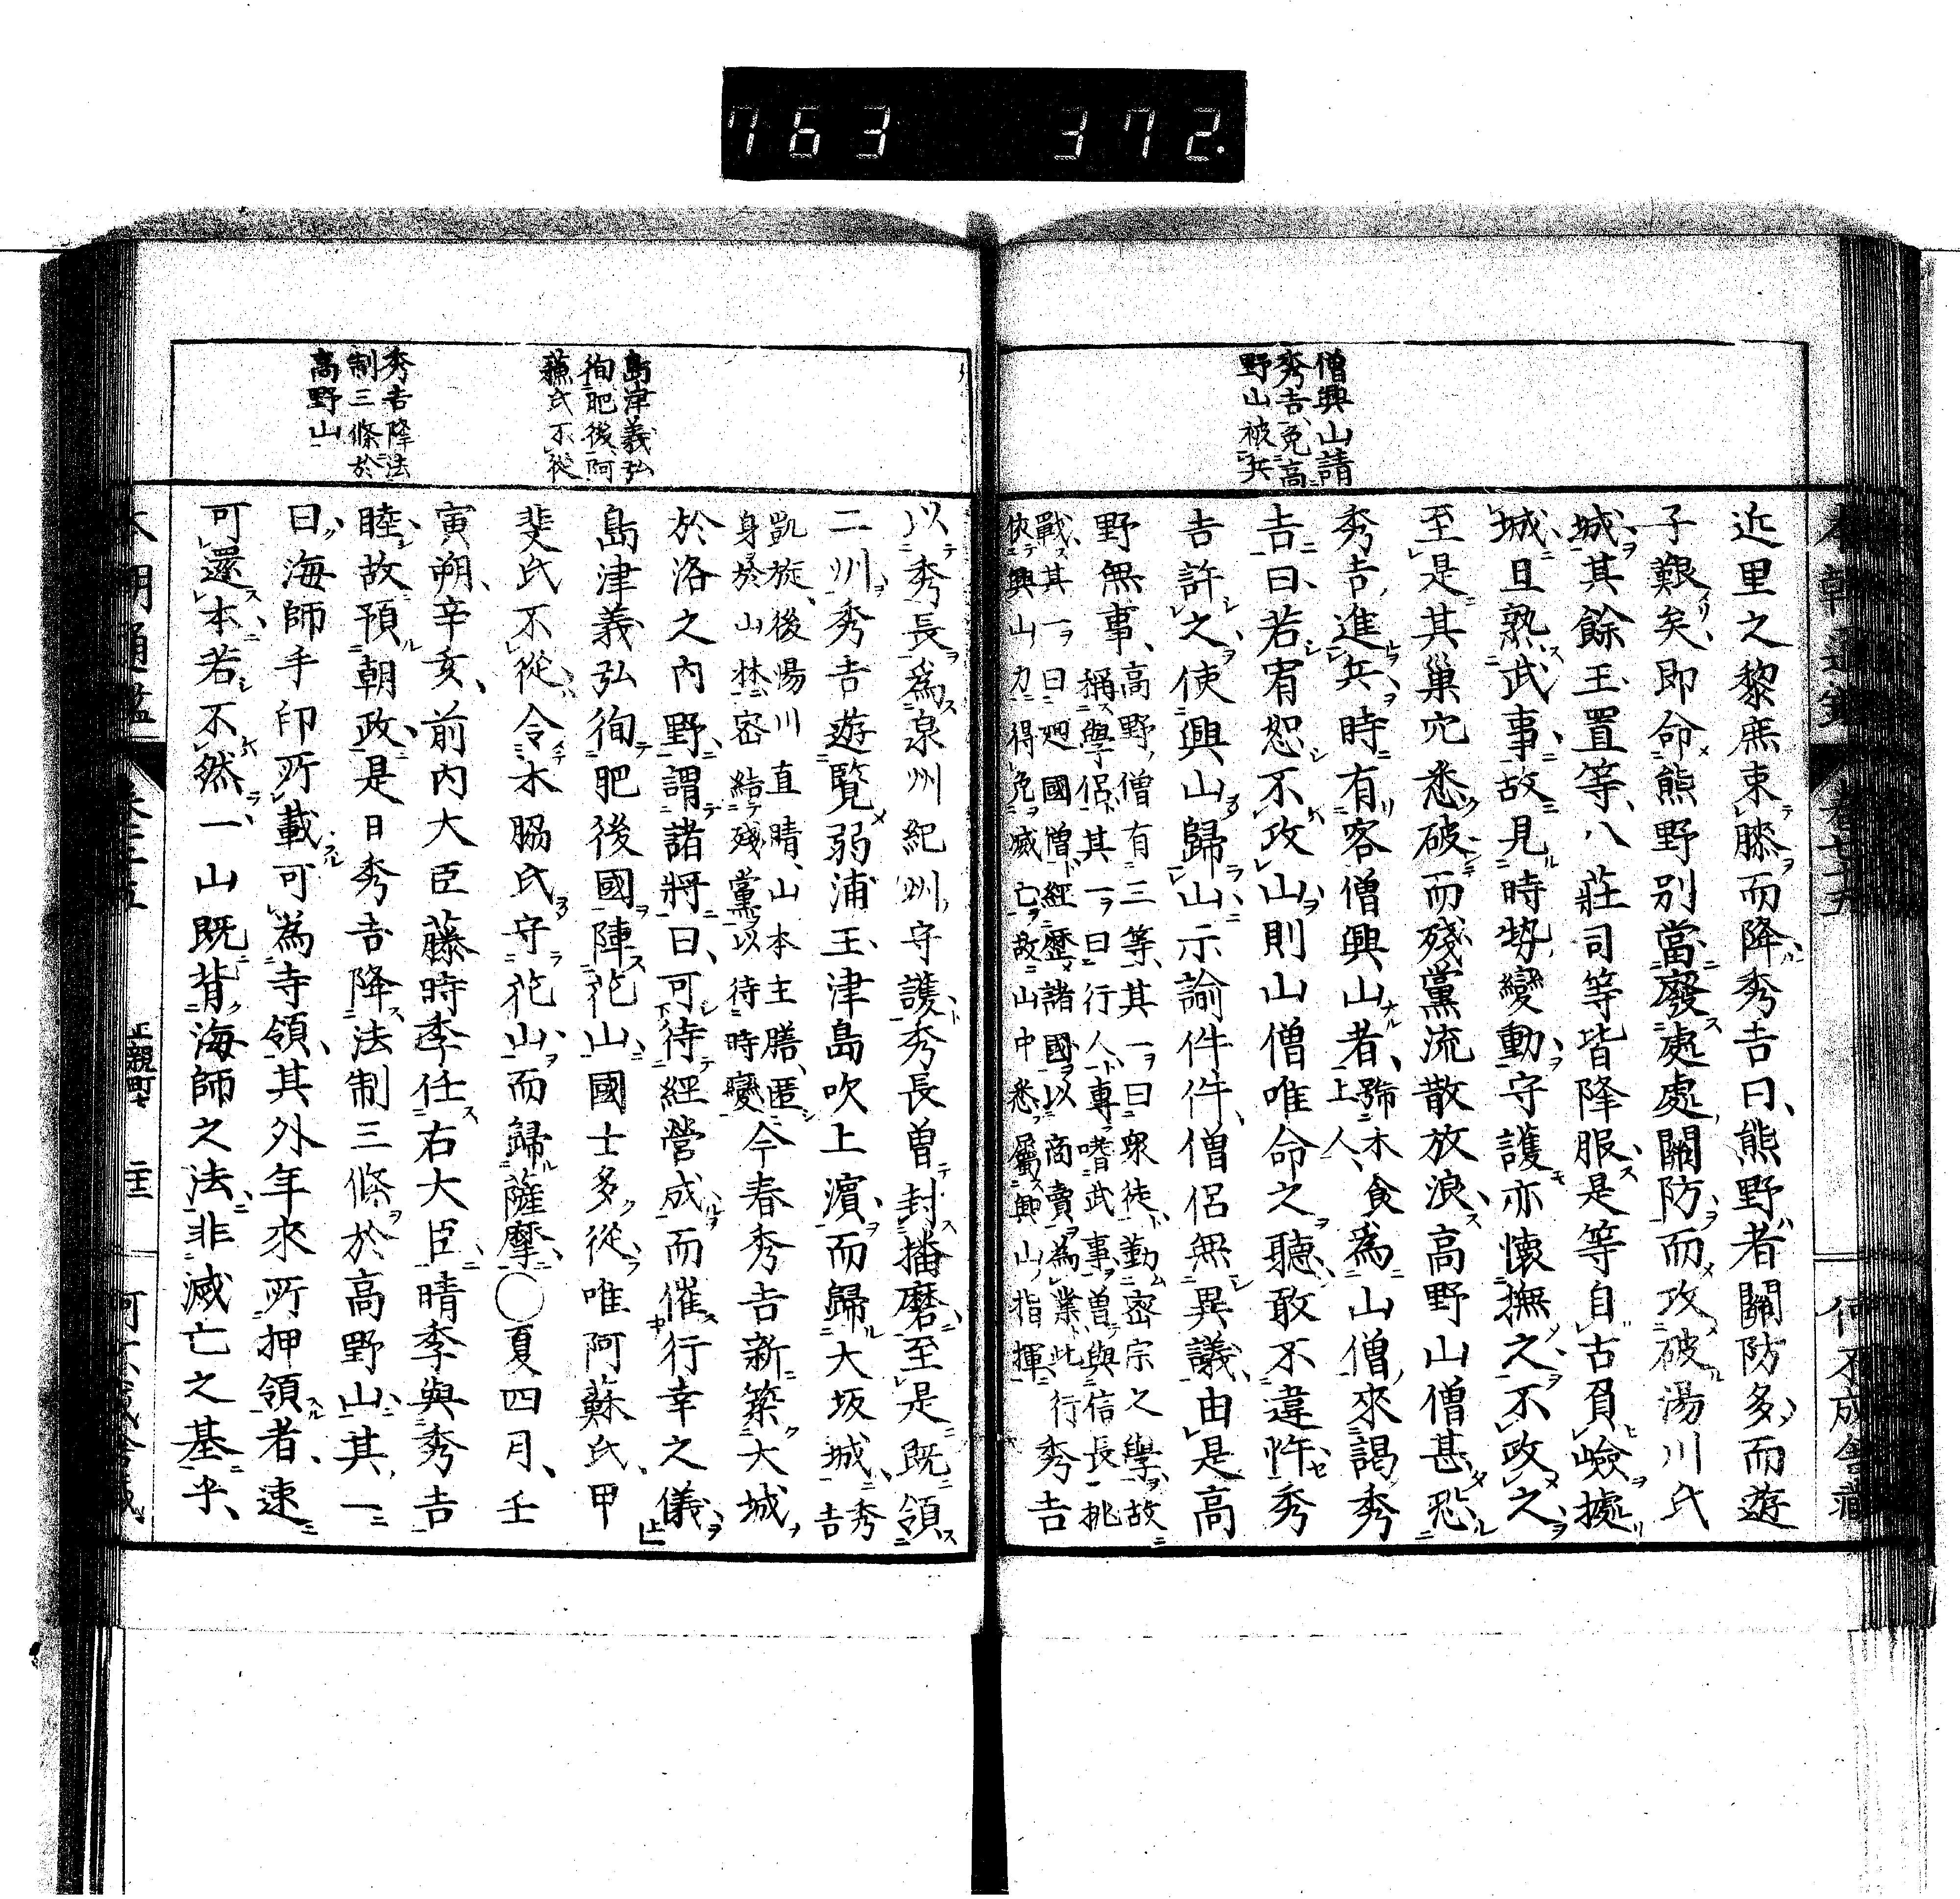 763 372.
僧興山請
秀吉、免高
野山被兵
近里之黎庶束膝而降秀吉曰、熊野者關防多而遊
子艱矣即命熊野別當廢處處關防而攻破湯川氏
城其餘玉置等、八莊司等皆降服是等自古負嶮據
城且熟武事故見時勢變動守護亦懷撫之不攻之
至是其巢穴悉破而殘黨流散放浪高野山僧甚恐
秀吉進兵時有客僧興山者、號木食爲山僧來謁秀
上人、
吉曰若宥恕不攻山則山僧唯命之聽敢不違忤秀
吉許之使興山歸山示諭件件、僧侶無異議由是高
野無事、高野僧有三等、其一曰衆徒勤密宗之學故
稱學侶其一曰行人專嗜武事曽與信長挑
戰其一曰廻國僧經歷諸國以商賣為業此行
依興山力得免滅亡故山中悉屬興山指揮
秀吉
以秀長爲泉州紀州守護秀長曽封播磨至是既領
二州秀吉遊覽弱浦玉津島吹上濵而歸大坂城秀
吉
凱旋後湯川直晴、山本主膳、匿
身於山林密結殘黨以待時變
今春秀吉新築大城
於洛之内野謂諸將曰、可待經營成而催行幸之儀
島津義弘徇肥後國陣花山國士多從唯阿蘇氏、甲
斐氏不從令木脇氏守花山而歸薩摩○夏四月、壬
寅朔、辛亥、前内大臣藤時季任右大臣晴季與秀吉
睦故預朝政是日秀吉降法制三條於高野山其一
曰海師手印所載可為寺領其外年來所押領者速
可還本若不然一山既背海師之法非滅亡之基乎、
島津義弘
徇肥後阿
蘇氏不從
秀吉降法
制三條於
高野山